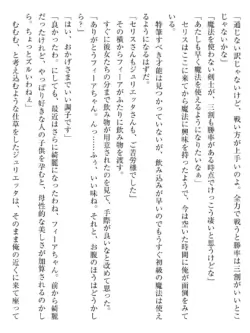 「追じない訳じゃないけど、戦い方が上手いのよ。全力で戦うと勝率は三割がいいとこ
じゃないかな」
「魔法を使わない剣士が、三割も勝率がある時点でけっこう凄いと思うけどな」
「あたしも早く魔法を使えるようになりたいなぁ」
セリスはここに来てから魔法に興味を持ったようで、今は空いた時間に俺が面倒をみて
いる。
特筆すべき才能は見つかっていないが、飲み込みが早いのでもうすぐ初級の魔法は使え
るようになるはずだ。
「セリスさんもジュリエッタさんも、ご苦労様でした」
その横からフィーアがふたりに飲み物を渡す。
すぐに彼女たちの分まで飲み物が用意されたのを見て、手際が良いなと感心する。
「ありがとうフィーアちゃん。んっ……ふぅ、いい味ね。それと、お腹のほうはどうかし
ら？」
「はい、おかげさまでいい調子です」
「良かったわ。それにしても、最近はさらに綺麗になったわね、フィーアちゃん。前から綺麗
だったけれど、やっぱり好きな人の子供を孕むと、母性的な美しさが加算されるのかし
ら。ちょっとズルいわね」
むむむ、と考え込むような仕草をしたジュリエッタは、そのまま俺の近くに来て寄って